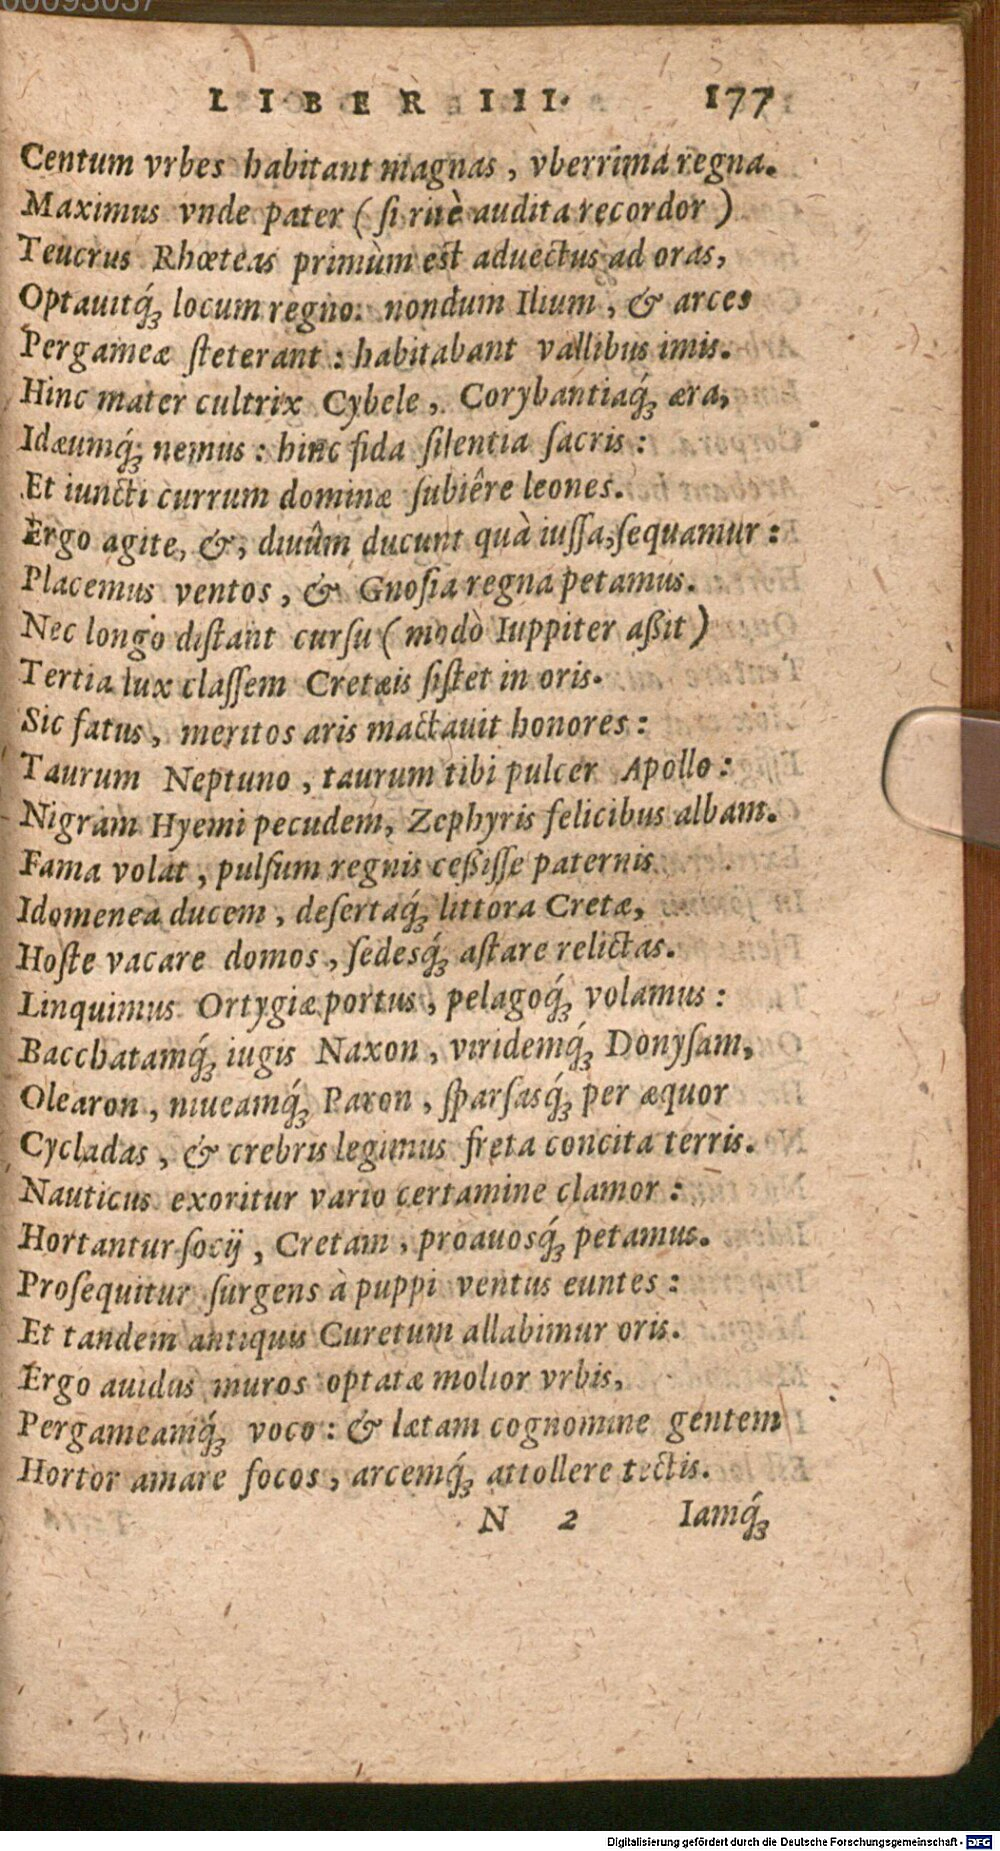 00093037
LIBER III. 177
Centum vrbes habitant magnas, vberrima regna.
Maximus vnde pater (ſi ritè audita recordor)
Teucrus Rhœteas primùm est aduectus ad oras,
Optauitq́ꝫ locum regno: nondum Ilium, & arces
Pergameæ ſteterant: habitabant vallibus imis.
Hinc mater cultrix Cybele, Corybantiaq́ꝫ æra,
Idæumq́ꝫ nemus: hinc fida ſilentia ſacris:
Et iuncti currum dominæ ſubiêre leones.
Ergo agite, &, diuûm ducunt quà iuſſa, ſequamur:
Placemus ventos, & Gnoſia regna petamus.
Nec longo diſtant curſu (modò Iuppiter aßit)
Tertia lux claſſem Cretæis ſiſtet in oris.
Sic fatus, meritos aris mactauit honores:
Taurum Neptuno, taurum tibi pulcer Apollo:
Nigram Hyemi pecudem, Zephyris felicibus albam.
Fama volat, pulſum regnis ceßiſſe paternis
Idomenea ducem, deſertaq́ꝫ littora Cretæ,
Hoſte vacare domos, ſedesq́ꝫ aſtare relictas.
Linquimus Ortygiæ portus, pelagoq́ꝫ volamus:
Bacchatamq́ꝫ iugis Naxon, viridemq́ꝫ Donyſam,
Olearon, niueamq́ꝫ Paron, ſparſasq́ꝫ per æquor
Cycladas, & crebris legimus freta concita terris.
Nauticus exoritur vario certamine clamor:
Hortantur ſocij, Cretam, proauosq́ꝫ petamus.
Proſequitur ſurgens à puppi ventus euntes:
Et tandem antiquis Curetum allabimur oris.
Ergo auidus muros optatæ molior vrbis,
Pergameamq́ꝫ voco: & lætam cognomine gentem
Hortor amare focos, arcemq́ꝫ attollere tectis.
N 2 Iamq́ꝫ
Digitalisierung gefördert durch die Deutsche Forschungsgemeinschaft - DFG